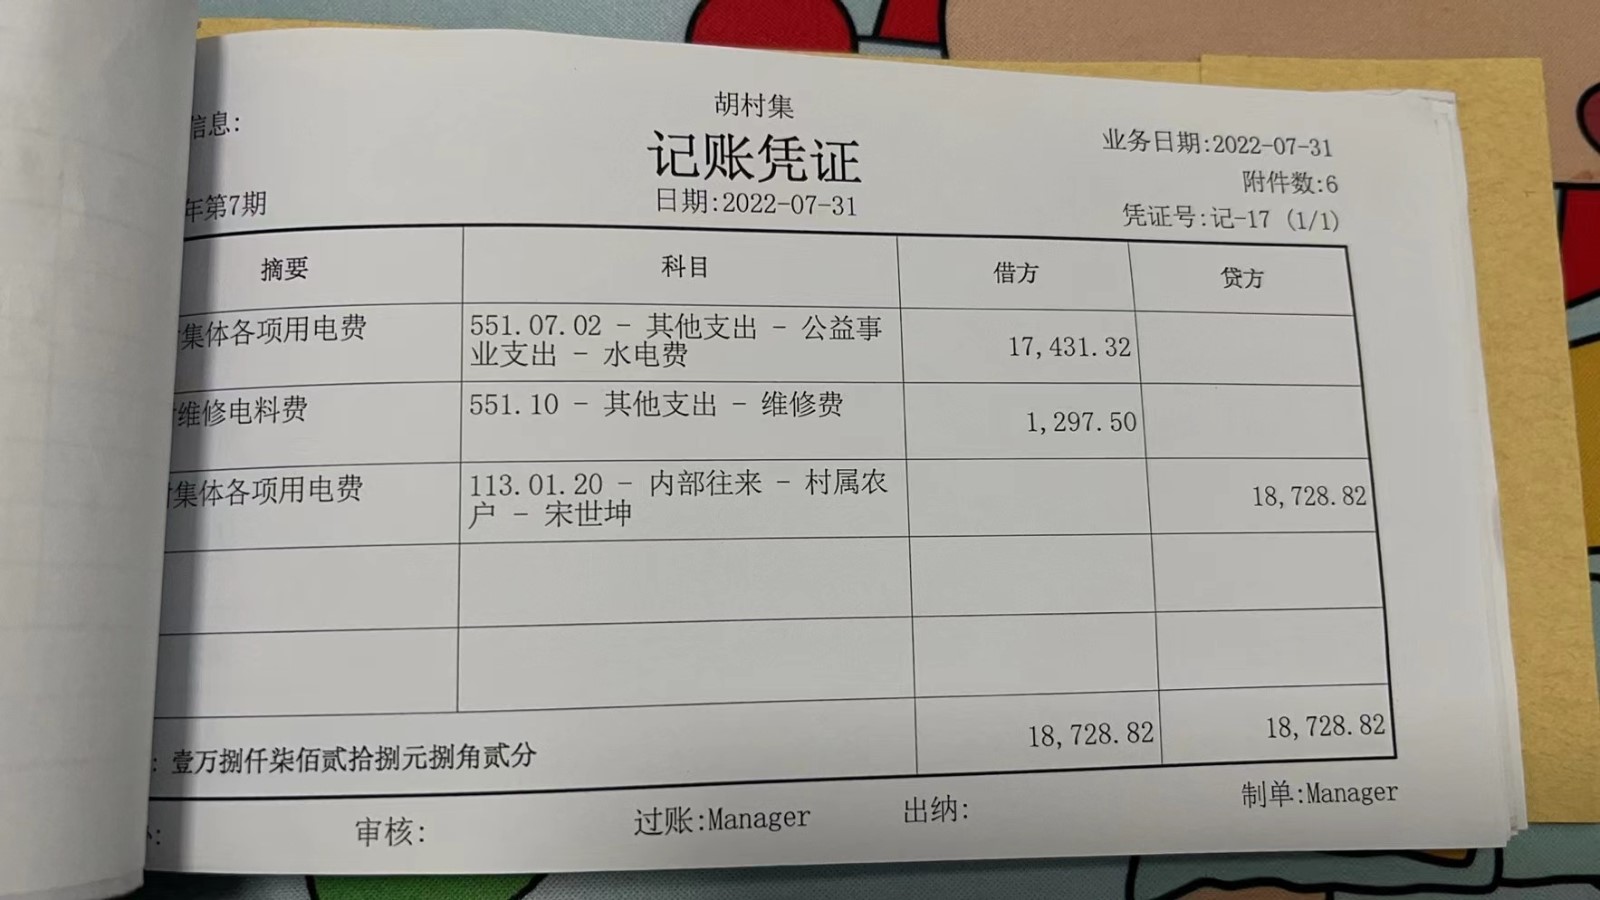 胡村集
信息:
记账凭证
业务日期:2022-07-31
附件数:6
年第7期
日期:2022-07-31
凭证号:记-17 (1/1)
摘要 科目 借方 贷方
集体各项用电费 551.07.02 - 其他支出 - 公益事 17,431.32
业支出 - 水电费
维修电料费 551.10 - 其他支出 - 维修费 1,297.50
集体各项用电费 113.01.20 - 内部往来 - 村属农 18,728.82
户 - 宋世坤
: 壹万捌仟柒佰贰拾捌元捌角贰分 18,728.82 18,728.82
审核: 过账:Manager 出纳: 制单:Manager